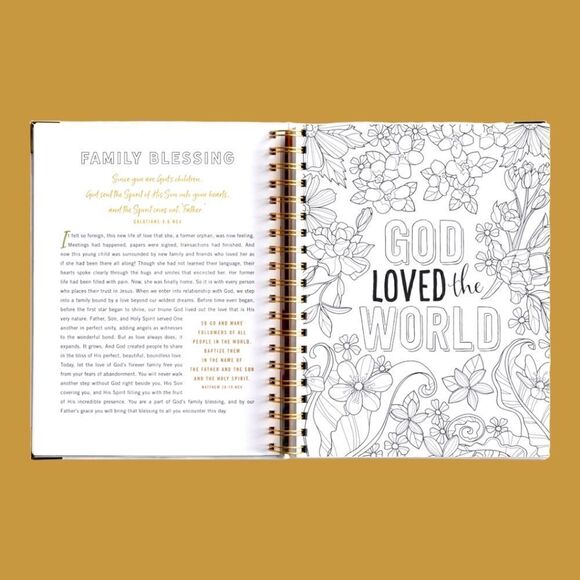 FAMILY BLESSING
Since you are God's children,
God sent the Spirit of His Son into your hearts,
and the Spirit cries out, "Father."
GALATIANS 4:6 NCV
It felt so foreign, this new life of love that she, a former orphan, was now feeling.
Meetings had happened, papers were signed, transactions had finished. And
now this young child was surrounded by new family and friends who loved her as
if she had been there all along! Though she had not learned their language, their
hearts spoke clearly through the hugs and smiles that encircled her. Her former
life had been filled with pain. Now, she was finally home. So it is with every person
who places their trust in Jesus. When we enter into relationship with God, we step
into a family bound by a love beyond our wildest dreams. Before time ever began,
before the first star began to shine, our triune God lived out the love that is His
very nature. Father, Son, and Holy Spirit served One
another in perfect unity, adding angels as witnesses
to the wonderful bond. But as love always does, it
expands. It grows. And God created people to share
in the bliss of His perfect, beautiful, boundless love.
Today, let the love of God's forever family free you
from your fears of abandonment. You will never walk
another step without God right beside you, His Son
covering you, and His Spirit filling you with the fruit
of His incredible presence. You are a part of God's family blessing, and by our
Father's grace you will bring that blessing to all you encounter this day.
SO GO AND MAKE
FOLLOWERS OF ALL
PEOPLE IN THE WORLD.
BAPTIZE THEM
IN THE NAME OF
THE FATHER AND THE SON
AND THE HOLY SPIRIT.
MATTHEW 28:19 NCV
GOD
LOVED the
WORLD